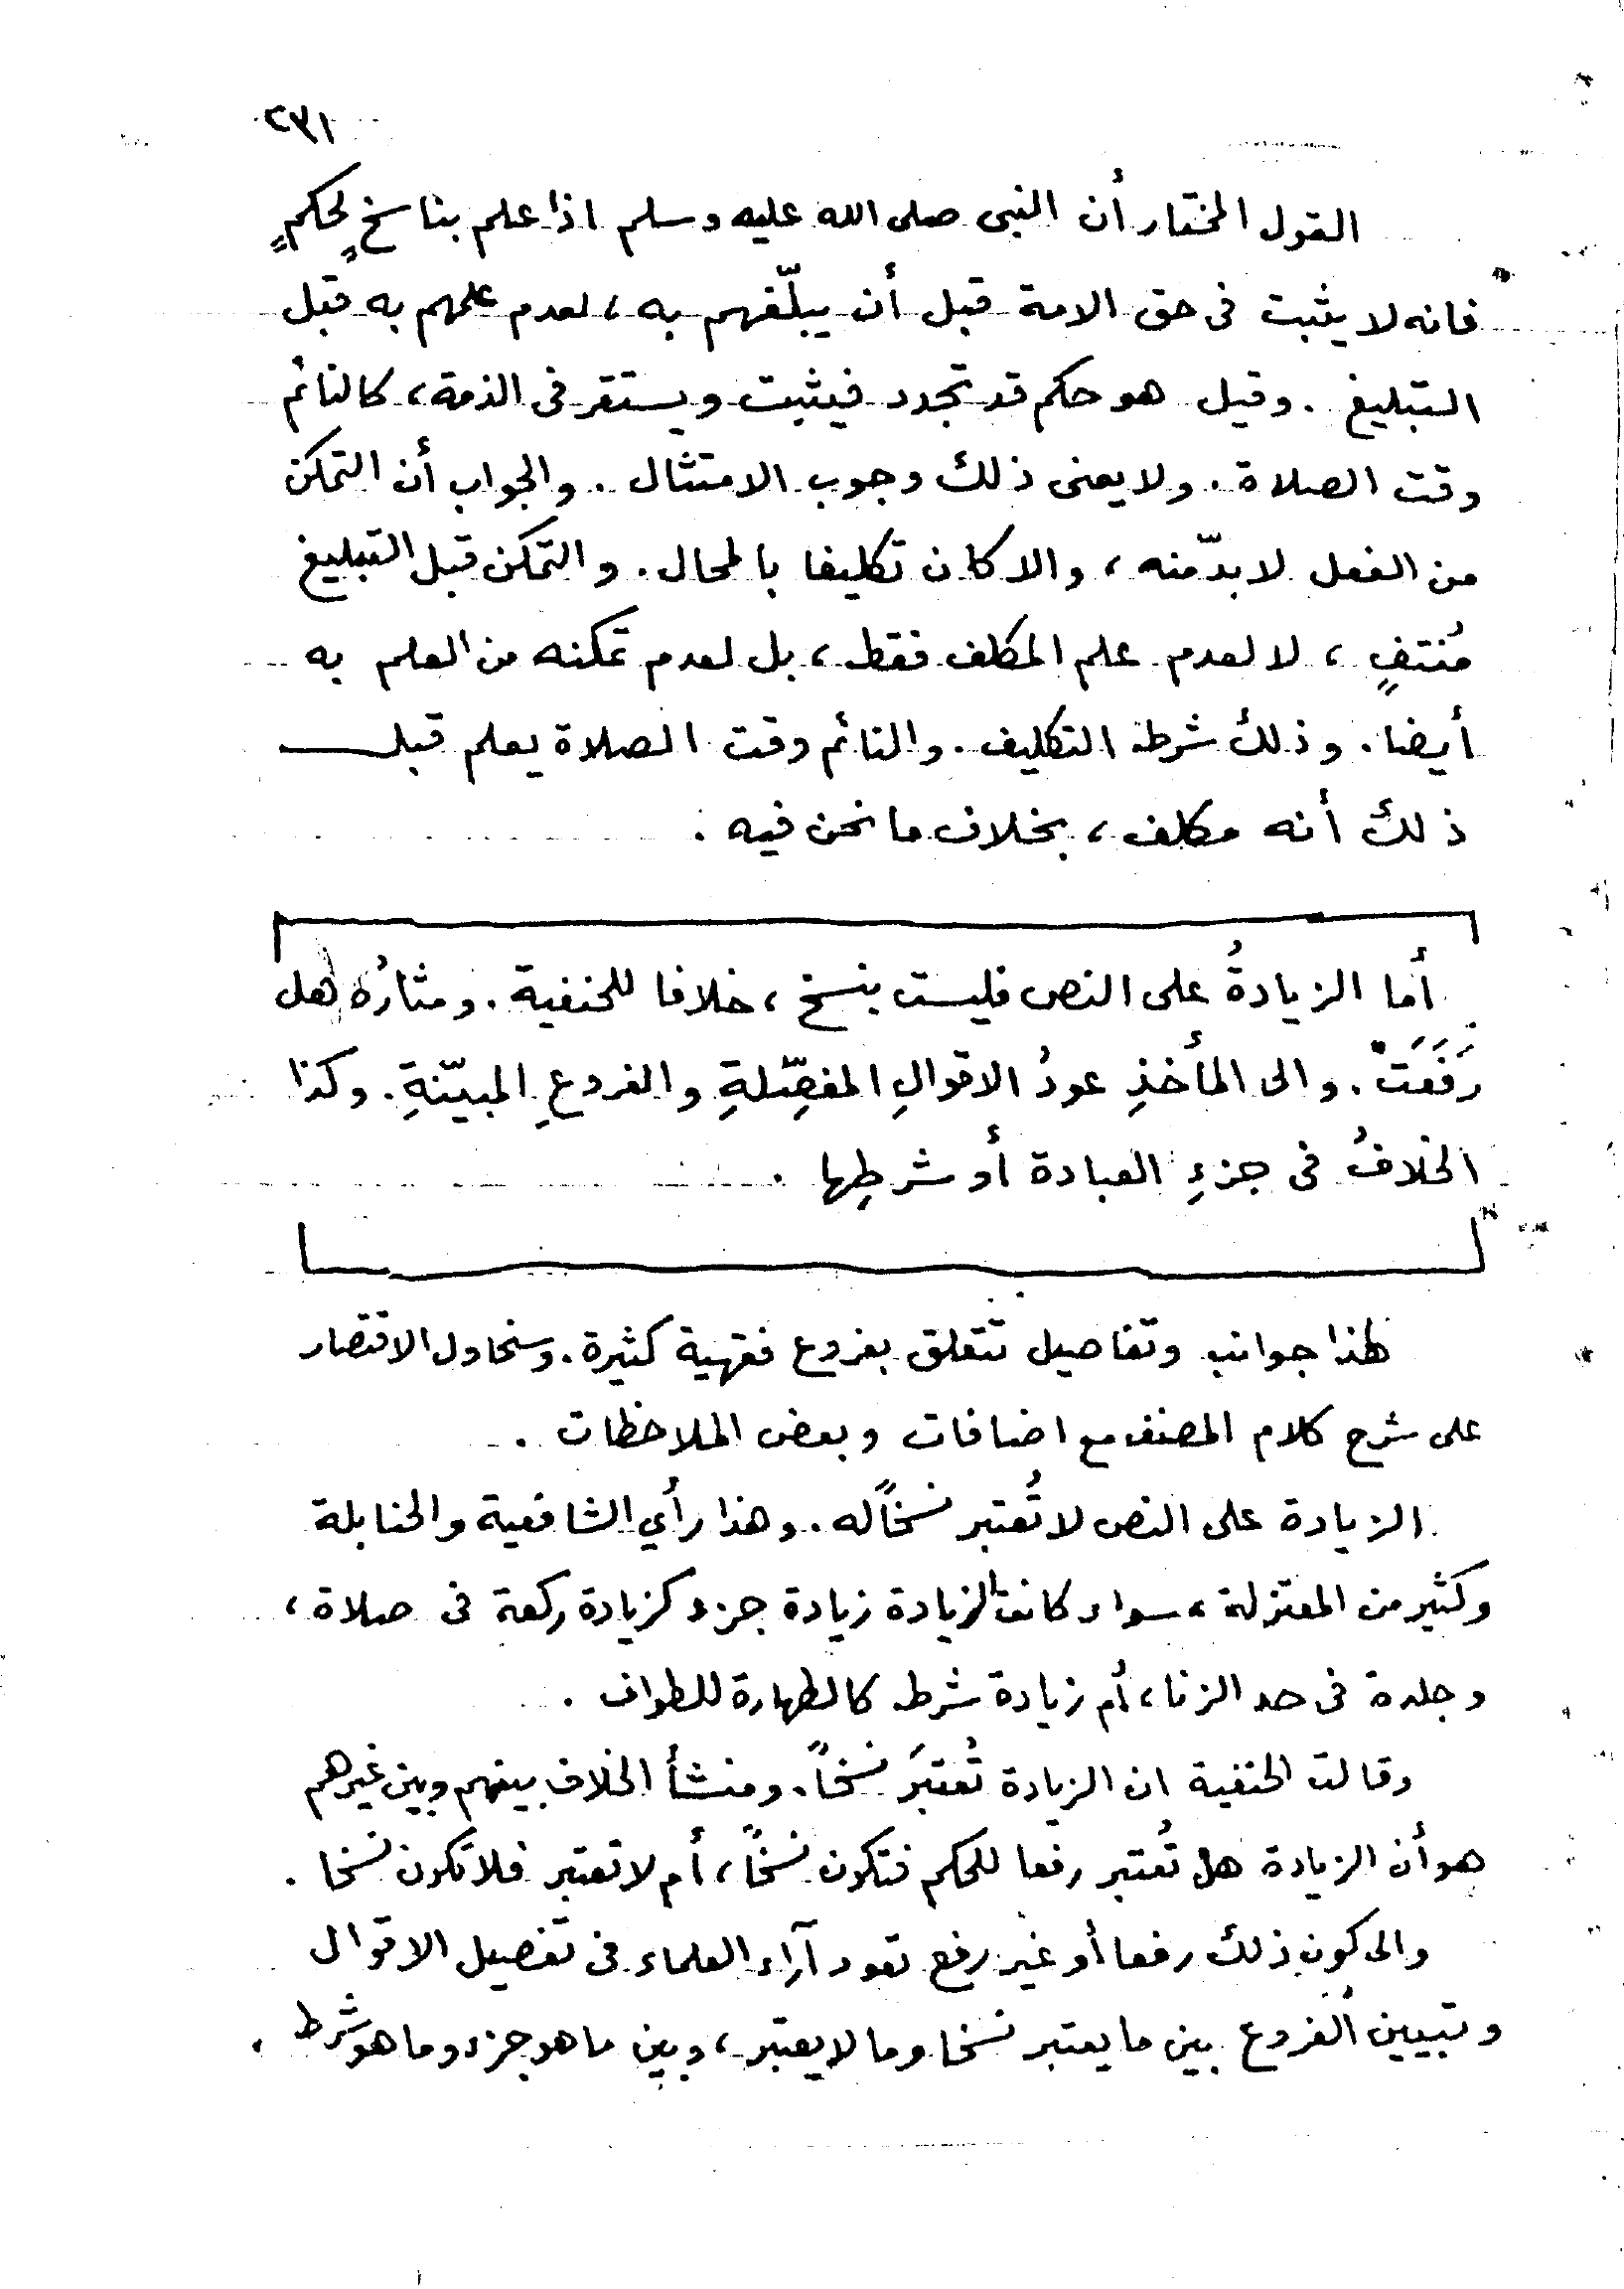 ٢٣١
القول المختار أن النبى صلى الله عليه وسلم اذا علم بناسخٍ لحكمٍ
فانه لا يثبت فى حق الامة قبل أن يبلّغهم به ، لعدم علمهم به قبل
التبليغ . وقيل هو حكم قد تجدد فيثبت ويستقر فى الذمة ، كالنائم
وقت الصلاة . ولا يعنى ذلك وجوب الامتثال . والجواب أن التمكن
من الفعل لا بدّ منه ، والا كان تكليفا بالمحال . والتمكن قبل التبليغ
مُنتفٍ ، لا لعدم علم المكلف فقط ، بل لعدم تمكنه من العلم به
أيضا . وذلك شرط التكليف . والنائم وقت الصلاة يعلم قبل
ذلك أنه مكلف ، بخلاف ما نحن فيه .
أما الزيادةُ على النص فليست بنسخ ، خلافا للحنفية . ومثارُه هل
رَفَعَتْ . والى المأخذِ عودُ الاقوالِ المفصِّلةِ والفروعِ المبيّنةِ . وكذا
الخلافُ فى جزءِ العبادة أو شرطِها .
لهذا جوانب وتفاصيل تتعلق بفروع فقهية كثيرة . وسنحاول الاقتصار
على شرح كلام المصنف مع اضافات وبعض الملاحظات .
الزيادة على النص لا تُعتبر نسخاً له . وهذا رأي الشافعية والحنابلة
وكثير من المعتزلة ، سواء كانت الزيادة زيادة جزء كزيادة ركعة فى صلاة ،
وجلدة فى حد الزنا ، أم زيادة شرط كالطهارة للطواف .
وقالت الحنفية ان الزيادة تُعتبَر نسخاً . ومنشأ الخلاف بينهم وبين غيرهم
هو أن الزيادة هل تُعتبر رفعا للحكم فتكون نسخاً ، أم لا تعتبر فلا تكون نسخا .
والى كون ذلك رفعا أو غير رفع تعود آراء العلماء فى تفصيل الاقوال
وتبيين الفروع بين ما يعتبر نسخا وما لا يعتبر ، وبين ما هو جزء وما هو شرط .